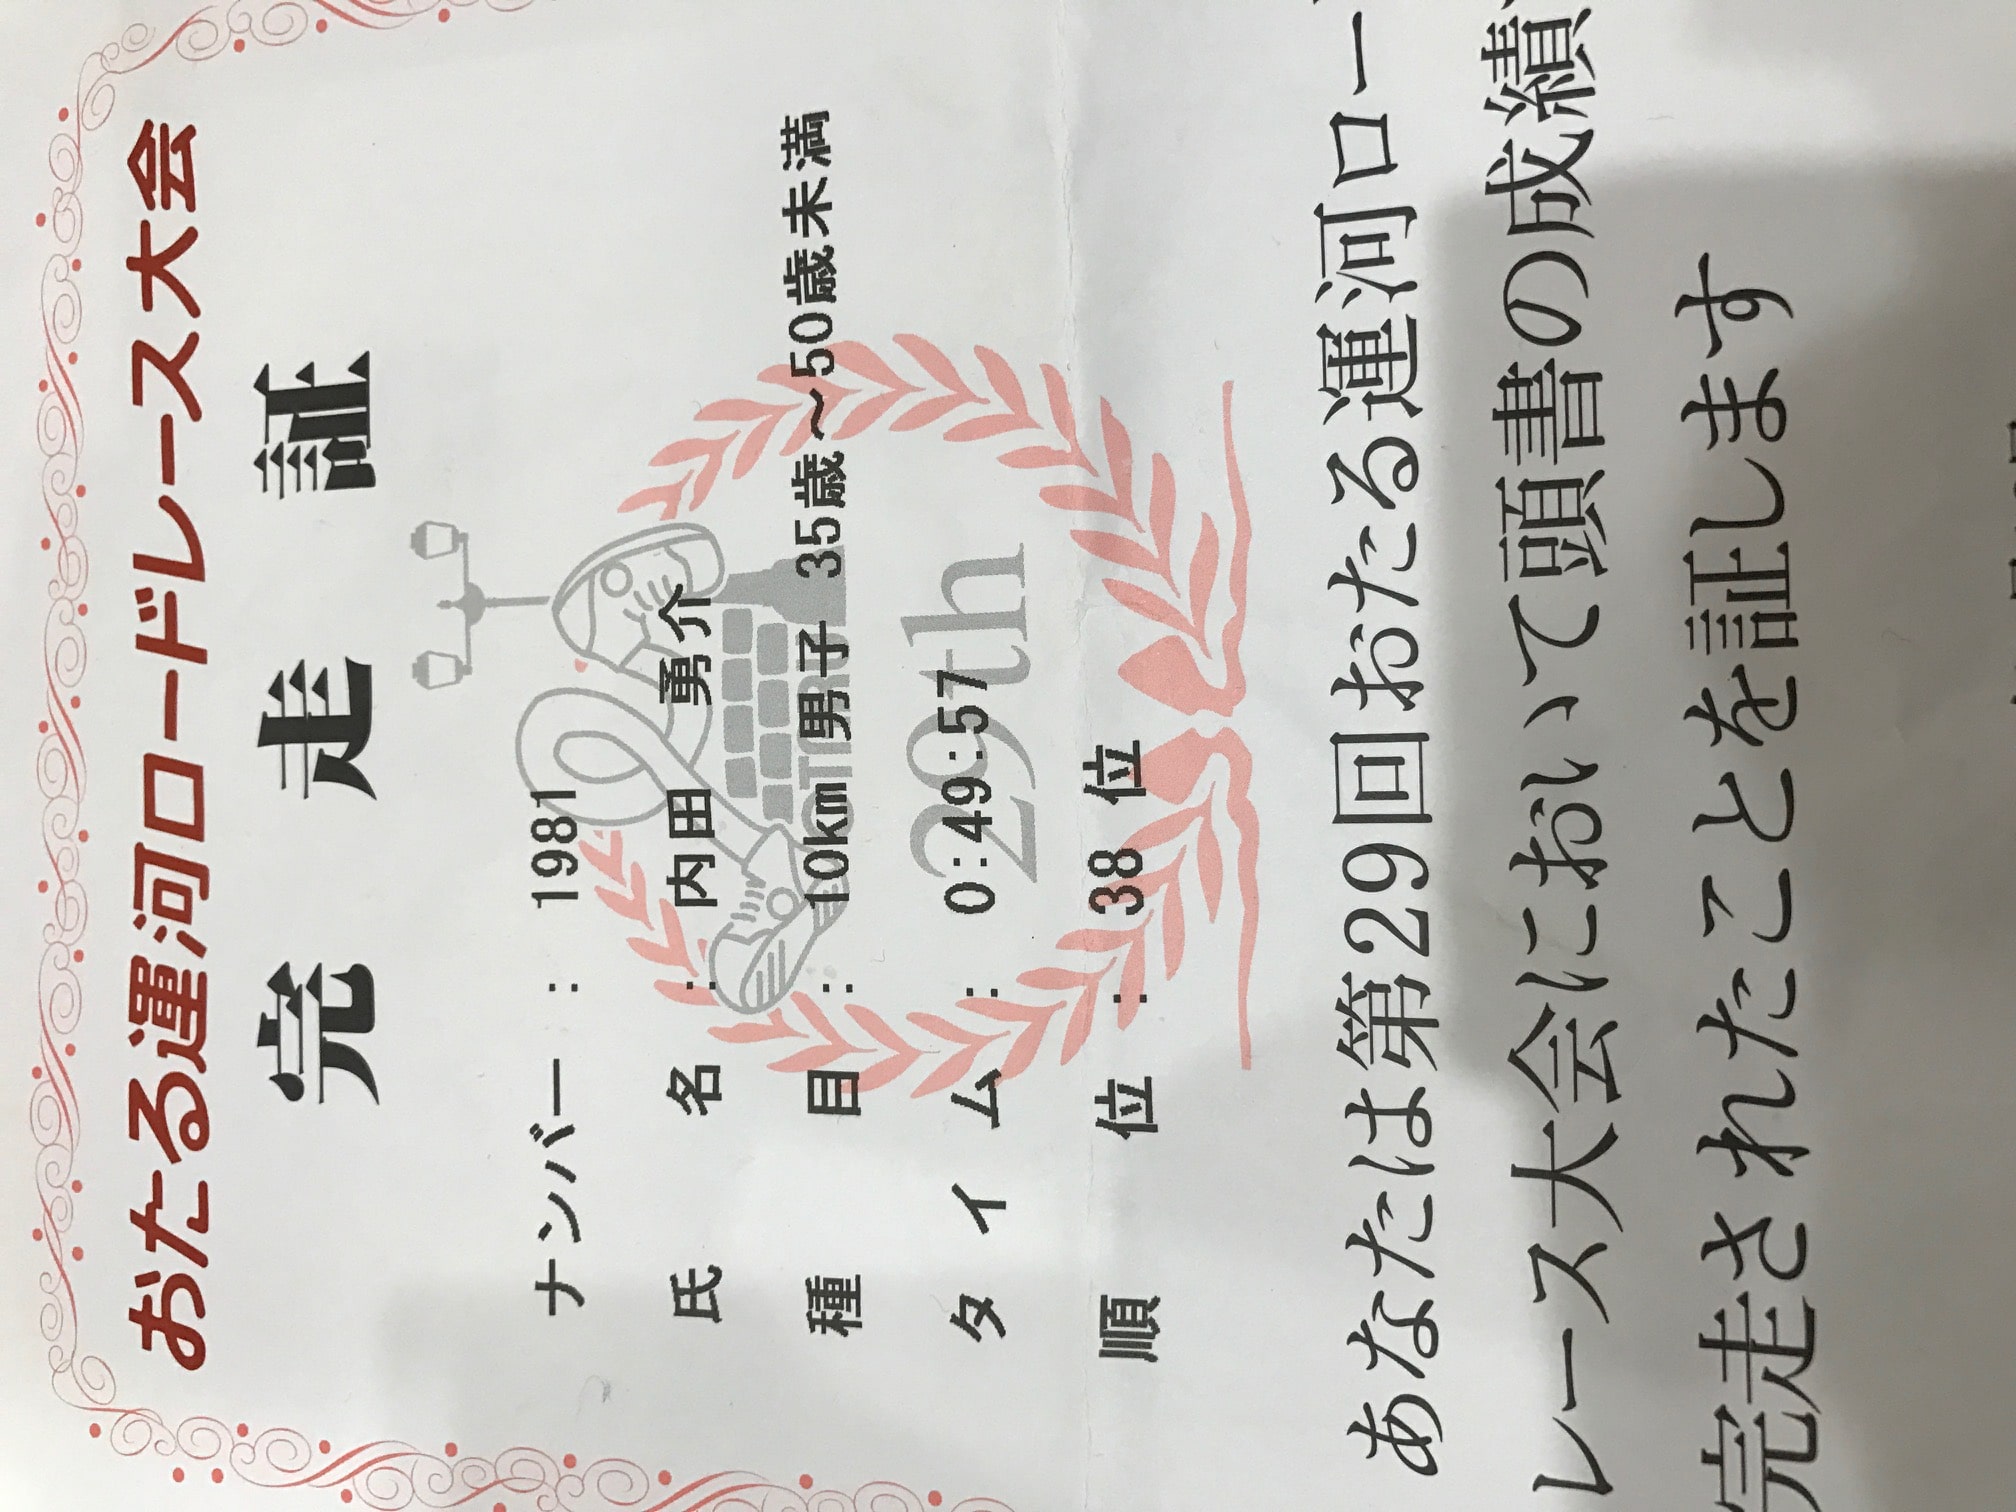 おたる運河ロードレース大会
完走証
ナンバー : 1981
氏名 : 内田 勇介
種目 : 10km 男子 35歳～50歳未満
タイム : 0:49:57
順位 : 38 位
OTARU
29th
あなたは第29回おたる運河ロー
レース大会において頭書の成績
完走されたことを証します